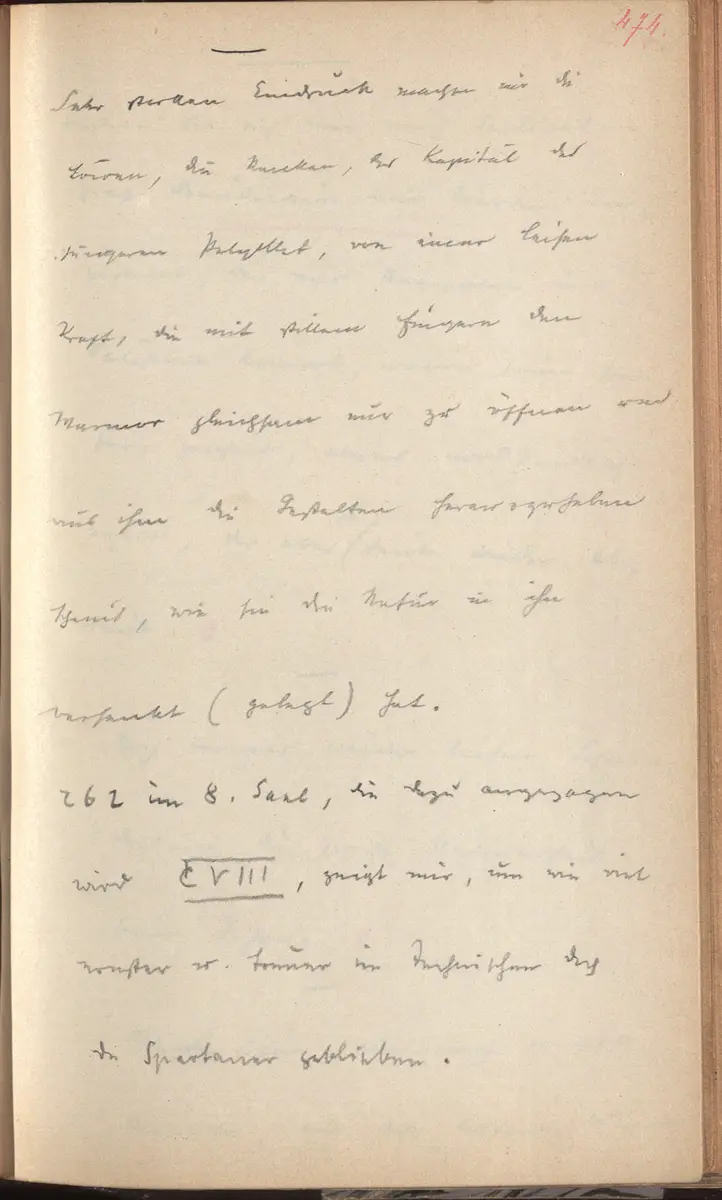 474.
Sehr starken Eindruck machen mir die
Löwen, die Ranken, das Kapitäl des
jüngeren Polyklet, von einer leisen
Kraft, die mit stillem Fingern den
Marmor gleichsam nur zu öffnen und
aus ihm die Gestalten herauszuheben
scheint, wie sie die Natur in ihn
versenkt (gelegt) hat.
262 im 8. Saal, die dazu angezogen
wird CVIII, zeigt mir, um wie viel
ernster u. treuer im Technischen doch
die Spartaner geblieben.